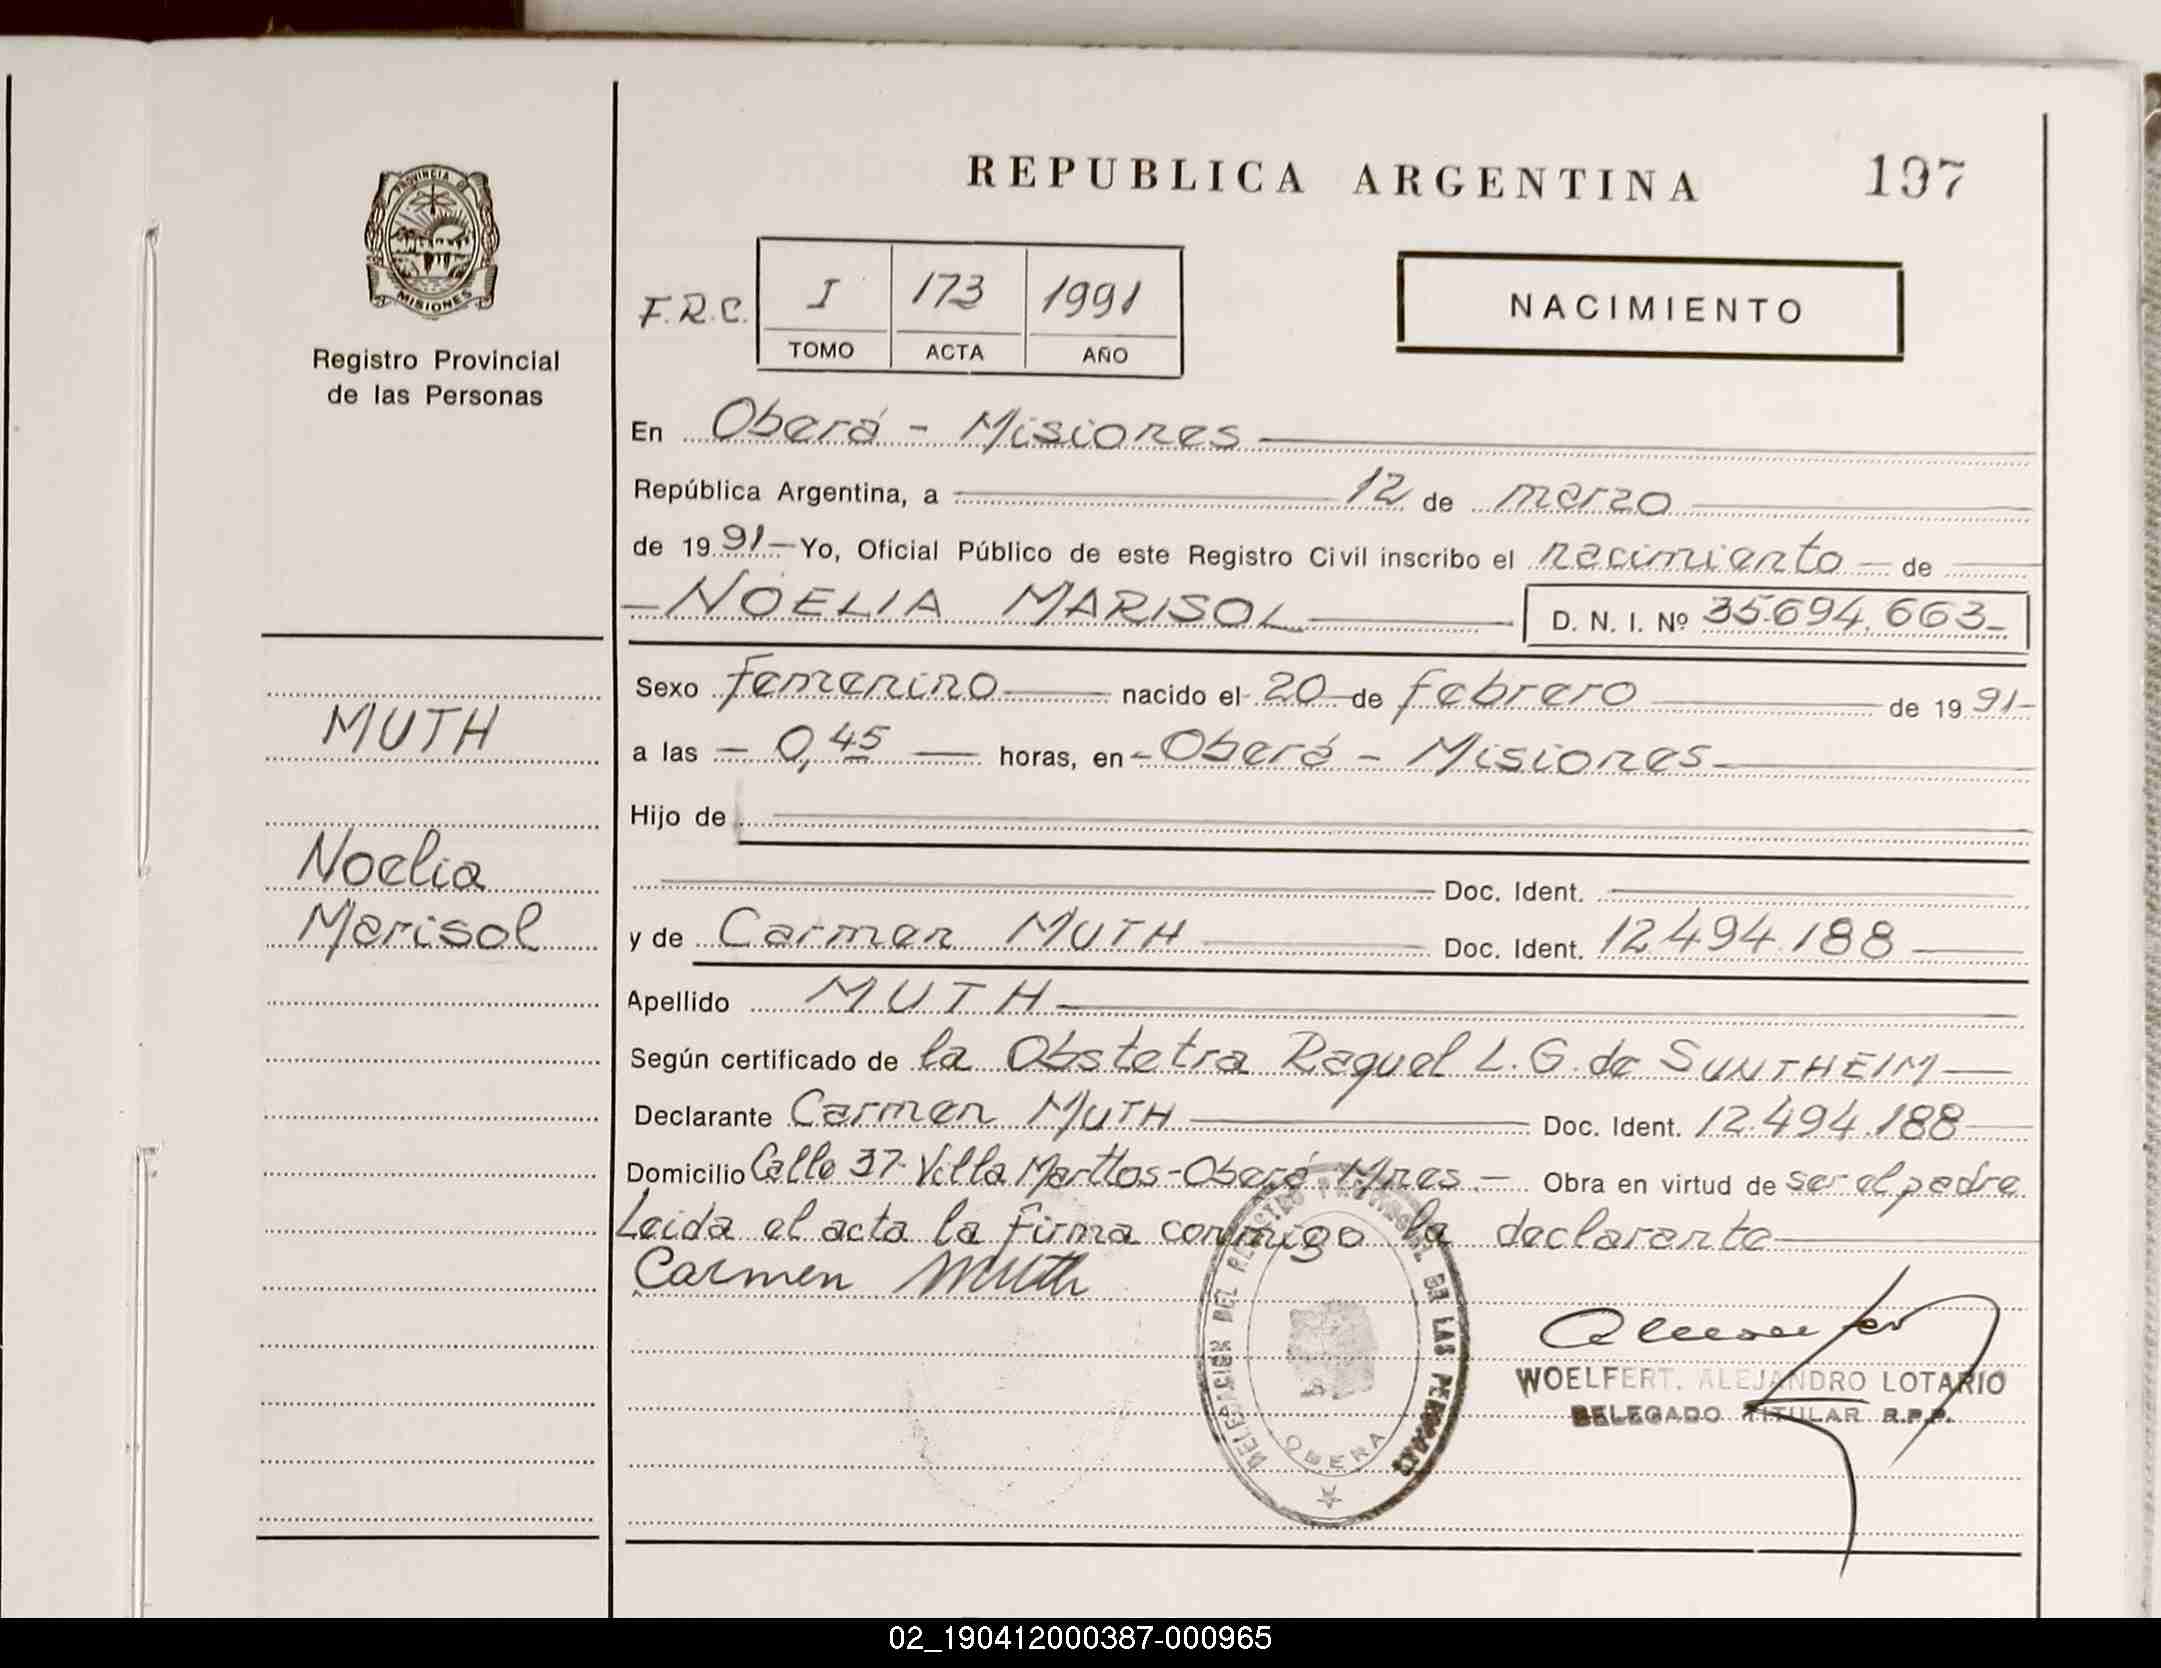 REPUBLICA ARGENTINA
197
PROVINCIA DE
MISIONES
Registro Provincial
de las Personas
F.R.C.
I 173 1991
TOMO ACTA AÑO
NACIMIENTO
En Oberá - Misiones
República Argentina, a 12 de marzo
de 1991 - Yo, Oficial Público de este Registro Civil inscribo el nacimiento - de
- NOELIA MARISOL
D. N. I. Nº 35.694.663-
MUTH
Noelia
Marisol
Sexo femenino nacido el 20 de febrero de 1991-
a las - 0,45 horas, en - Oberá - Misiones
Hijo de
Doc. Ident.
y de Carmen MUTH Doc. Ident. 12.494.188
Apellido MUTH
Según certificado de la Obstetra Raquel L. G. de SUNTHEIM
Declarante Carmen MUTH Doc. Ident. 12.494.188
Domicilio Calle 37- Villa Marttos - Oberá Mnes. - Obra en virtud de ser el padre
Leida el acta la firma conmigo la declarante
Carmen Muth
DELEGACION DEL REGISTRO PROVINCIAL DE LAS PERSONAS
OBERA
WOELFERT, ALEJANDRO LOTARIO
DELEGADO TITULAR R.P.P.
02_190412000387-000965